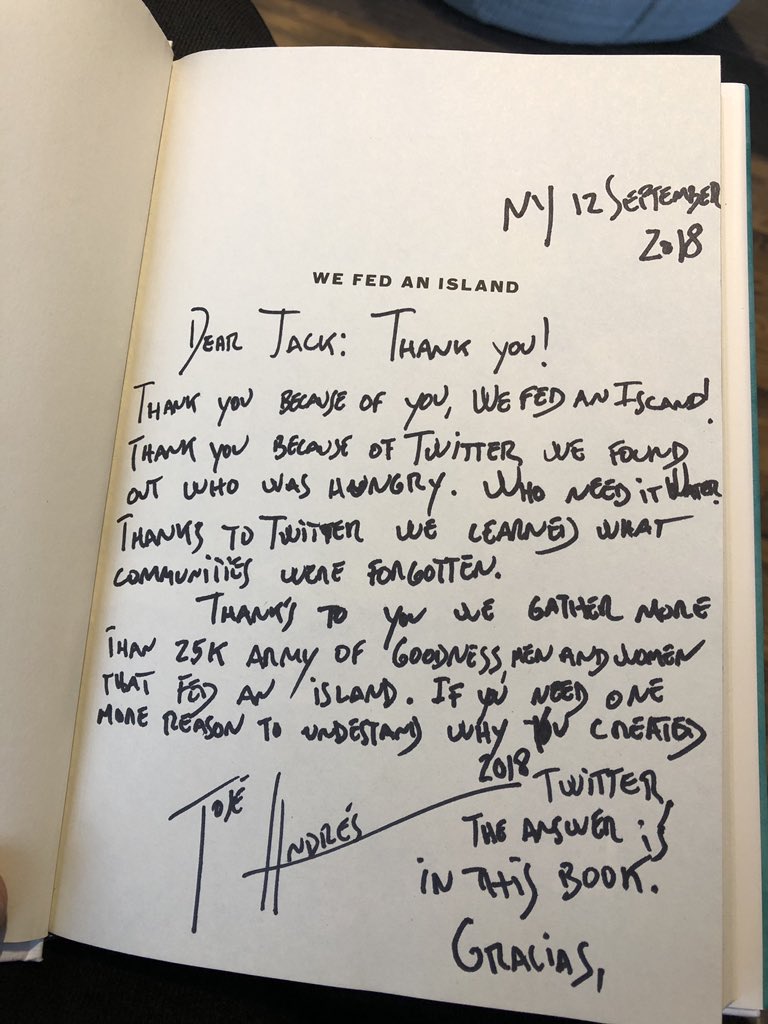 NY 12 SEPTEMBER
2018
WE FED AN ISLAND
DEAR JACK: THANK YOU!
THANK YOU BECAUSE OF YOU, WE FED AN ISLAND!
THANK YOU BECAUSE OF TWITTER, WE FOUND
OUT WHO WAS HUNGRY. WHO NEED IT WATER.
THANKS TO TWITTER WE LEARNED WHAT
COMMUNITIES WERE FORGOTTEN.
THANK'S TO YOU WE GATHER MORE
THAN 25K ARMY OF GOODNESS, MEN AND WOMEN
THAT FED AN ISLAND. IF YOU NEED ONE
MORE REASON TO UNDESTAND WHY YOU CREATED
TWITTER,
THE ANSWER IS
IN THIS BOOK.
GRACIAS,
JOSÉ ANDRÉS 2018